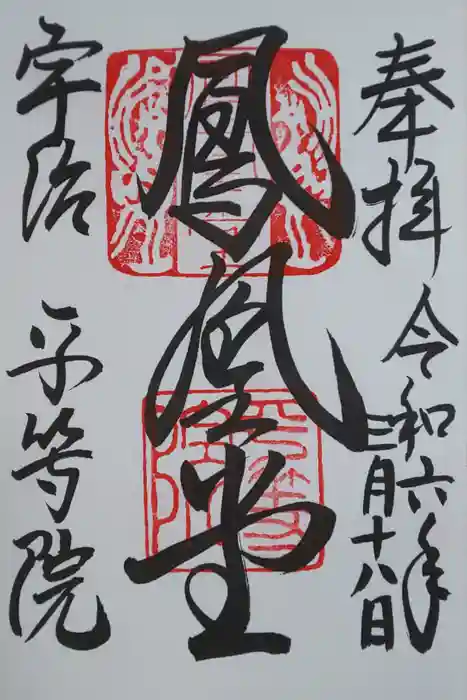 奉拝
令和六年
三月十八日
鳳凰堂
宇治
平等院
平等院